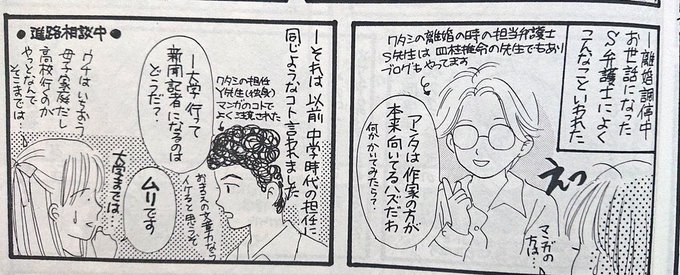 ―離婚調停中
お世話になった
S弁護士によく
こんなこといわれた
ワタシの離婚の時の担当弁護士
S先生は四柱推命の先生でもあり
ブログもやってます
アンタは作家の方が
本来向いてるハズだわ
何かかいてみたら?
えっ
マンガの
方は…
―それは以前中学時代の担任に
同じようなコト言われました
ワタシの担任
Y先生(技家)
マンガのコトで
よく注意された
―大学行って
新聞記者になるのは
どうだ?
おまえの文章力なら
イケると思うぞ
●進路相談中●
ウチはいちおう
母子家庭だし
高校行くのが
やっとなんで
そこまでは…
ムリです
大学までは…